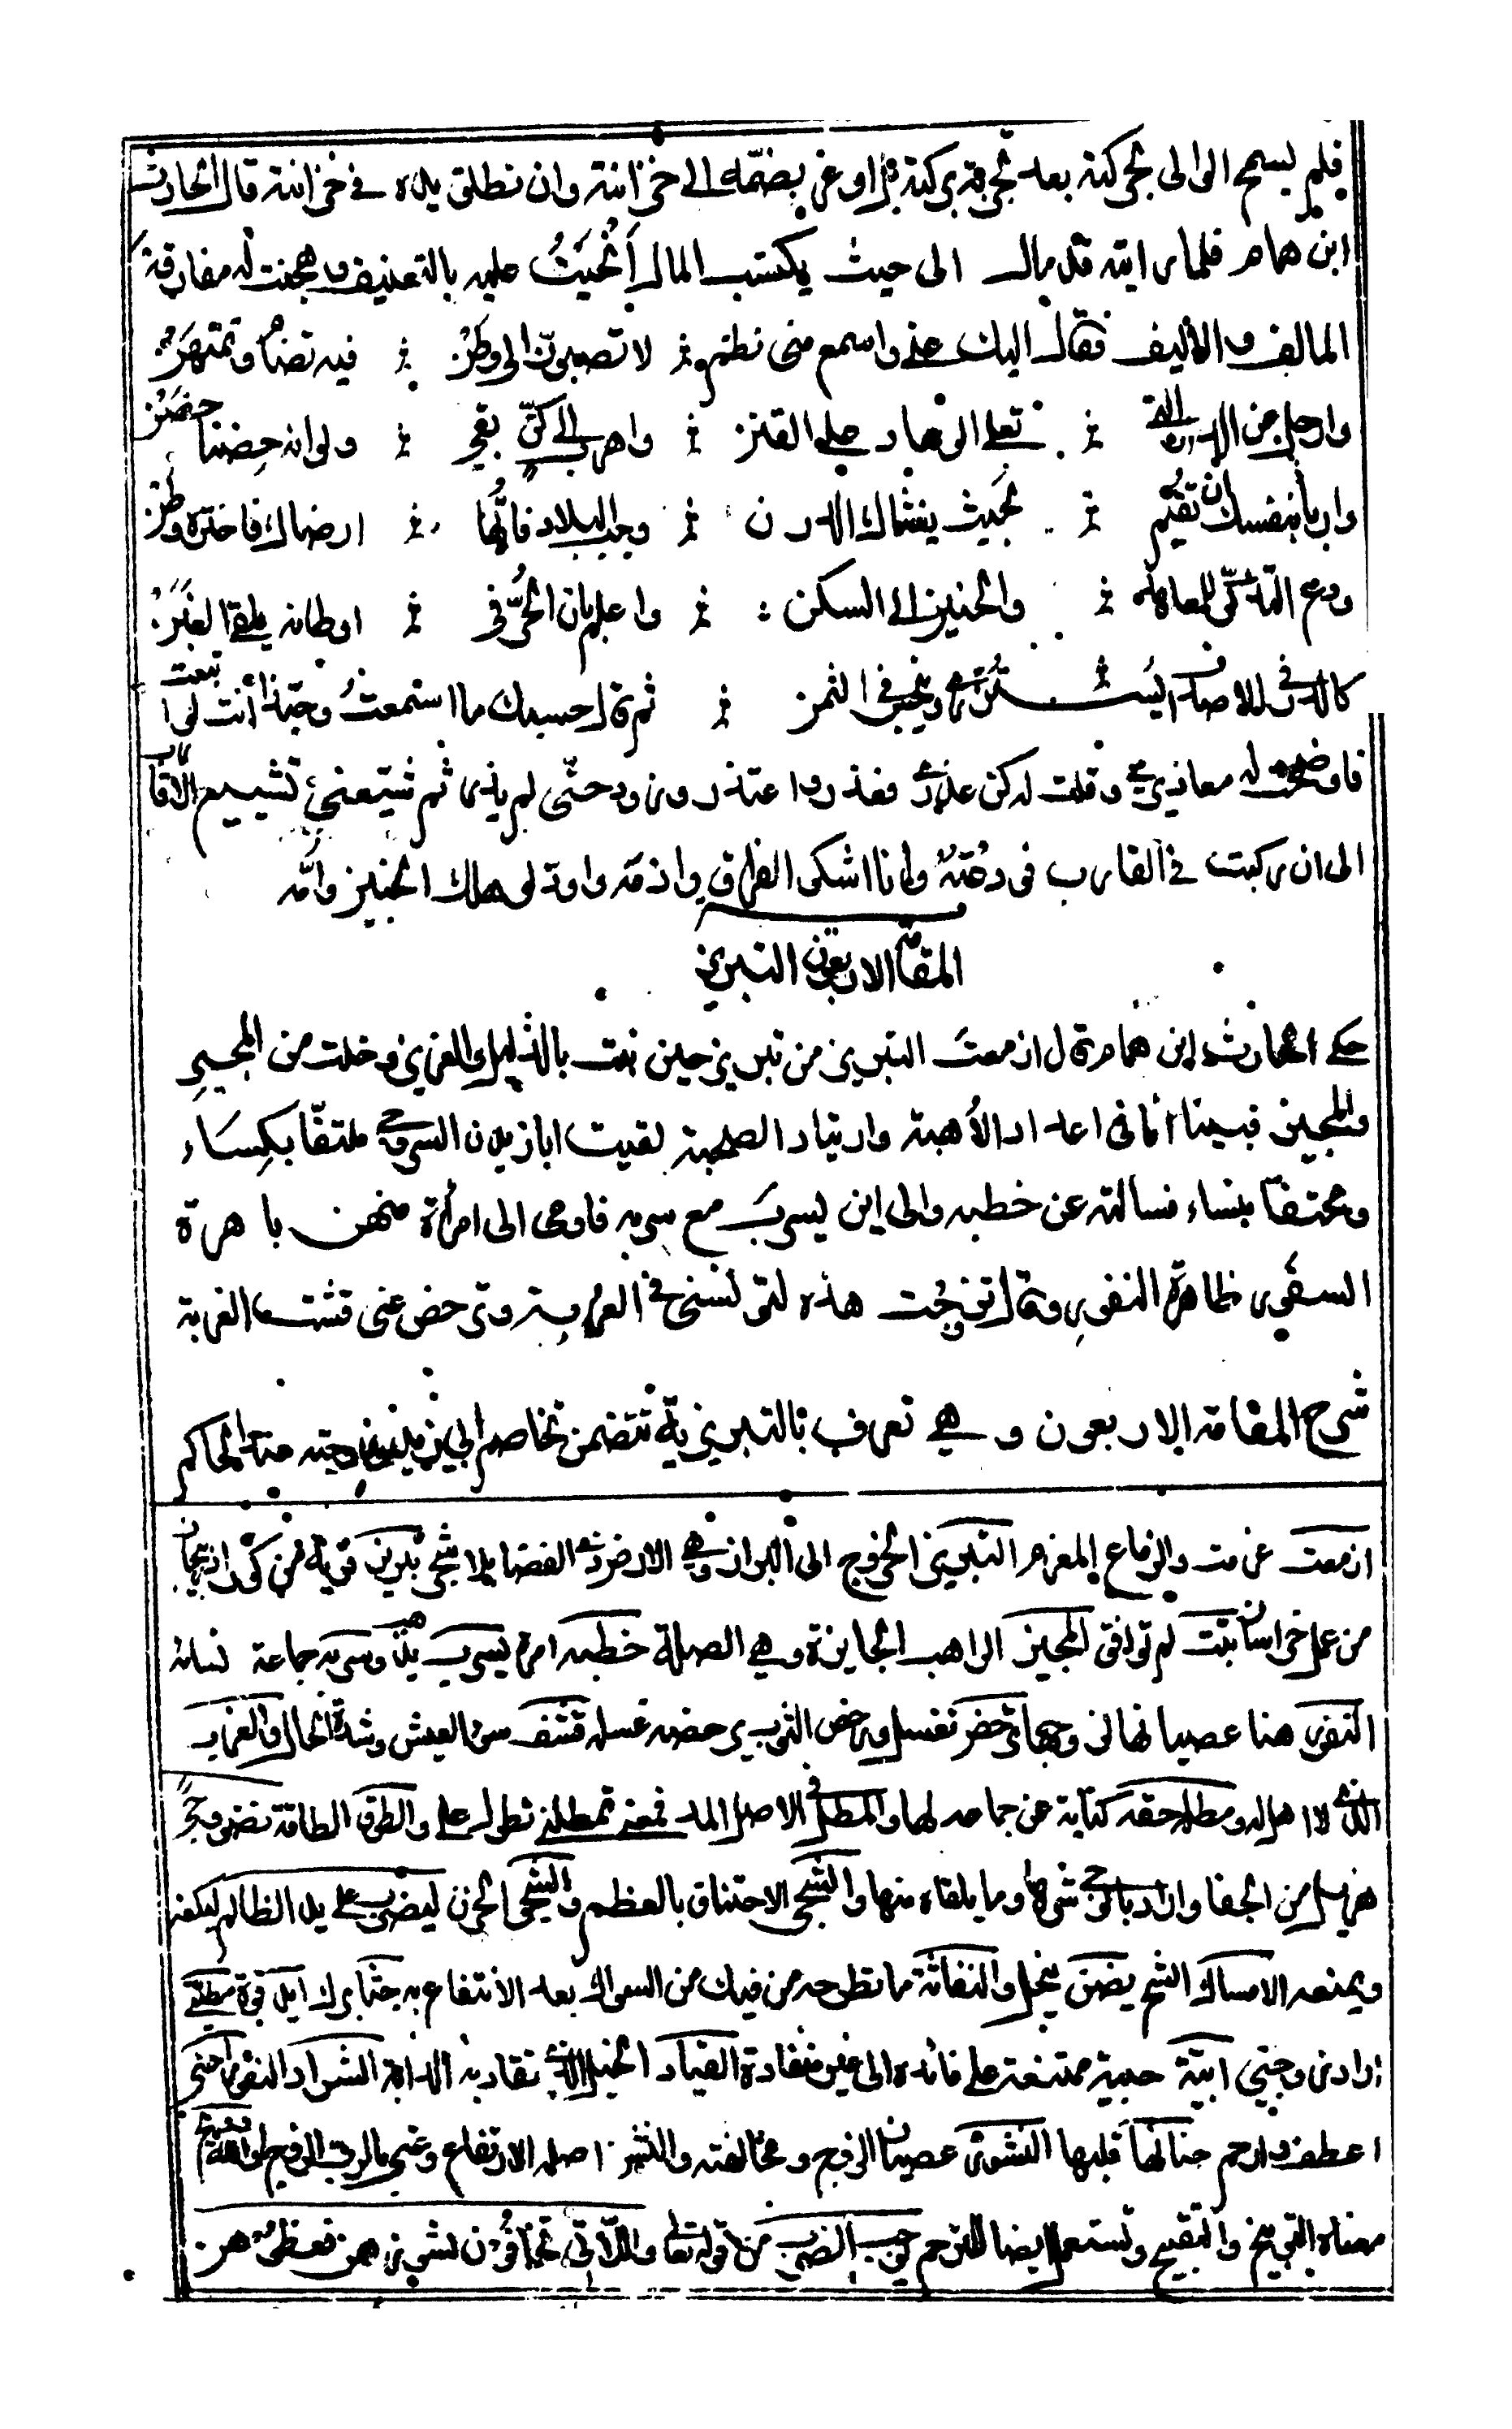 فلم يسمح الوالى بحركته بعد تجربة بركته بل اوعز بضمّه الى خزانته وان تطلق يده فى خزانته قال الحارث
ابن همام فلما رايته قد مال الى حيث يكتسب المال أنحيتُ عليه بالتعنيف وهجنت له مفارقة
المالف والاليف فقال اليك عنى واسمع منى نظم لا تصبونّ الى وطن فيه تضام وتمتهن
وارحل عن الدار التى تعلى الوهاد على القنن واهرب الى كنّ يقى ولو انه حضنا حضن
واربأ بنفسك ان تقيم بحيث يغشاك الدرن وجب البلاد فايّها ارضاك فاختره وطن
ودع التذكّر للمعاهد والحنين الى السكن واعلم بان الحرّ فى اوطانه يلقى الغبن
كالدرّ فى الاصداف يستزرى ويبخس فى الثمن ثم قال حسبك ما استمعتُ وحبذا أنت لو اتبعت
فاوضحت له معاذيرى وقلت له كن عذيرى فعذر واعتذر وزود حتّى لم يذر ثم شيّعنى تشييع الاقارب
الى ان ركبت فى القارب فودعته وانا اشكو الفراق واذمه واود لو هلك الجنين وامّه
المقامة الاربعون التبريزية
حكى الحارث ابن همام قال ازمعت التبريز من تبريز حين نبت بالذليل والعزيز وخلت من المجير
والمجيز فبينا انا فى اعداد الأهبة وارتياد الصحبة لقيت ابا زيد ن السروجى ملتفّا بكساء
ومحتفّا بنساء فسالته عن خطبه والى اين يسرب مع سربه فاومى الى امرأة منهن باهرة
السفور ظاهرة النفور وقال تزوجت هذه لتونسنى فى الغربة وترحض عنى قشف الغربة
شرح المقامة الاربعون وهى تعرف بالتبريزية تتضمن تخاصم ابى زيد وزوجته عند الحاكم
ازمعت عزمت والزماع المعزم التبريز الخروج الى البراز وهى الارض ذى الفضا بلا شجر تبريز قرية من كور اذربيجان
من عمل خراسان نبت لم توافق المجيز الواهب الجايزة وهى الصلة خطبه امره يسرب يذهب وسربه جماعة نسائه
النفور هنا عصيانها لزوجها ترحض تغسل ورحض الثوب يرحضه غسله قشف سوء العيش وشدة الحال والغريب
الذى لا اهل له ومطله حقه كناية عن جماعه لها والمطل فى الاصل المد فمعنى تمطلنى تطول على والطوق الطاقة نضو وجًى
هزيل من الجفا والدباجى شرها وما يلقاه منها والشجى الاختناق بالعظم والشجى الحزن ليضرب على يد الظالم ليكفه
ويمنعه الامساك الشح يضن يبخل والنفاثة ما تطرحه من فيك من السواك بعد الانتفاع به جثا برك ايد قوة مطيّتى
اراد زوجتى ابيّة صعبة ممتنعة على قائده الى غير منقادة القياد الحبل الذى تقاد به الدابة الشراد النفور احنى
اعطف وارحم جنانها قلبها النشوز عصيان الزوج ومخالفته والنشز اصله الارتفاع وغير بالرب الزوج
معناه التوبيخ والتقبيح وتستعمل ايضا للترحم يوجب الضرب من قوله تعالى واللّاتى تخافُون نشوزهن فعظوهن